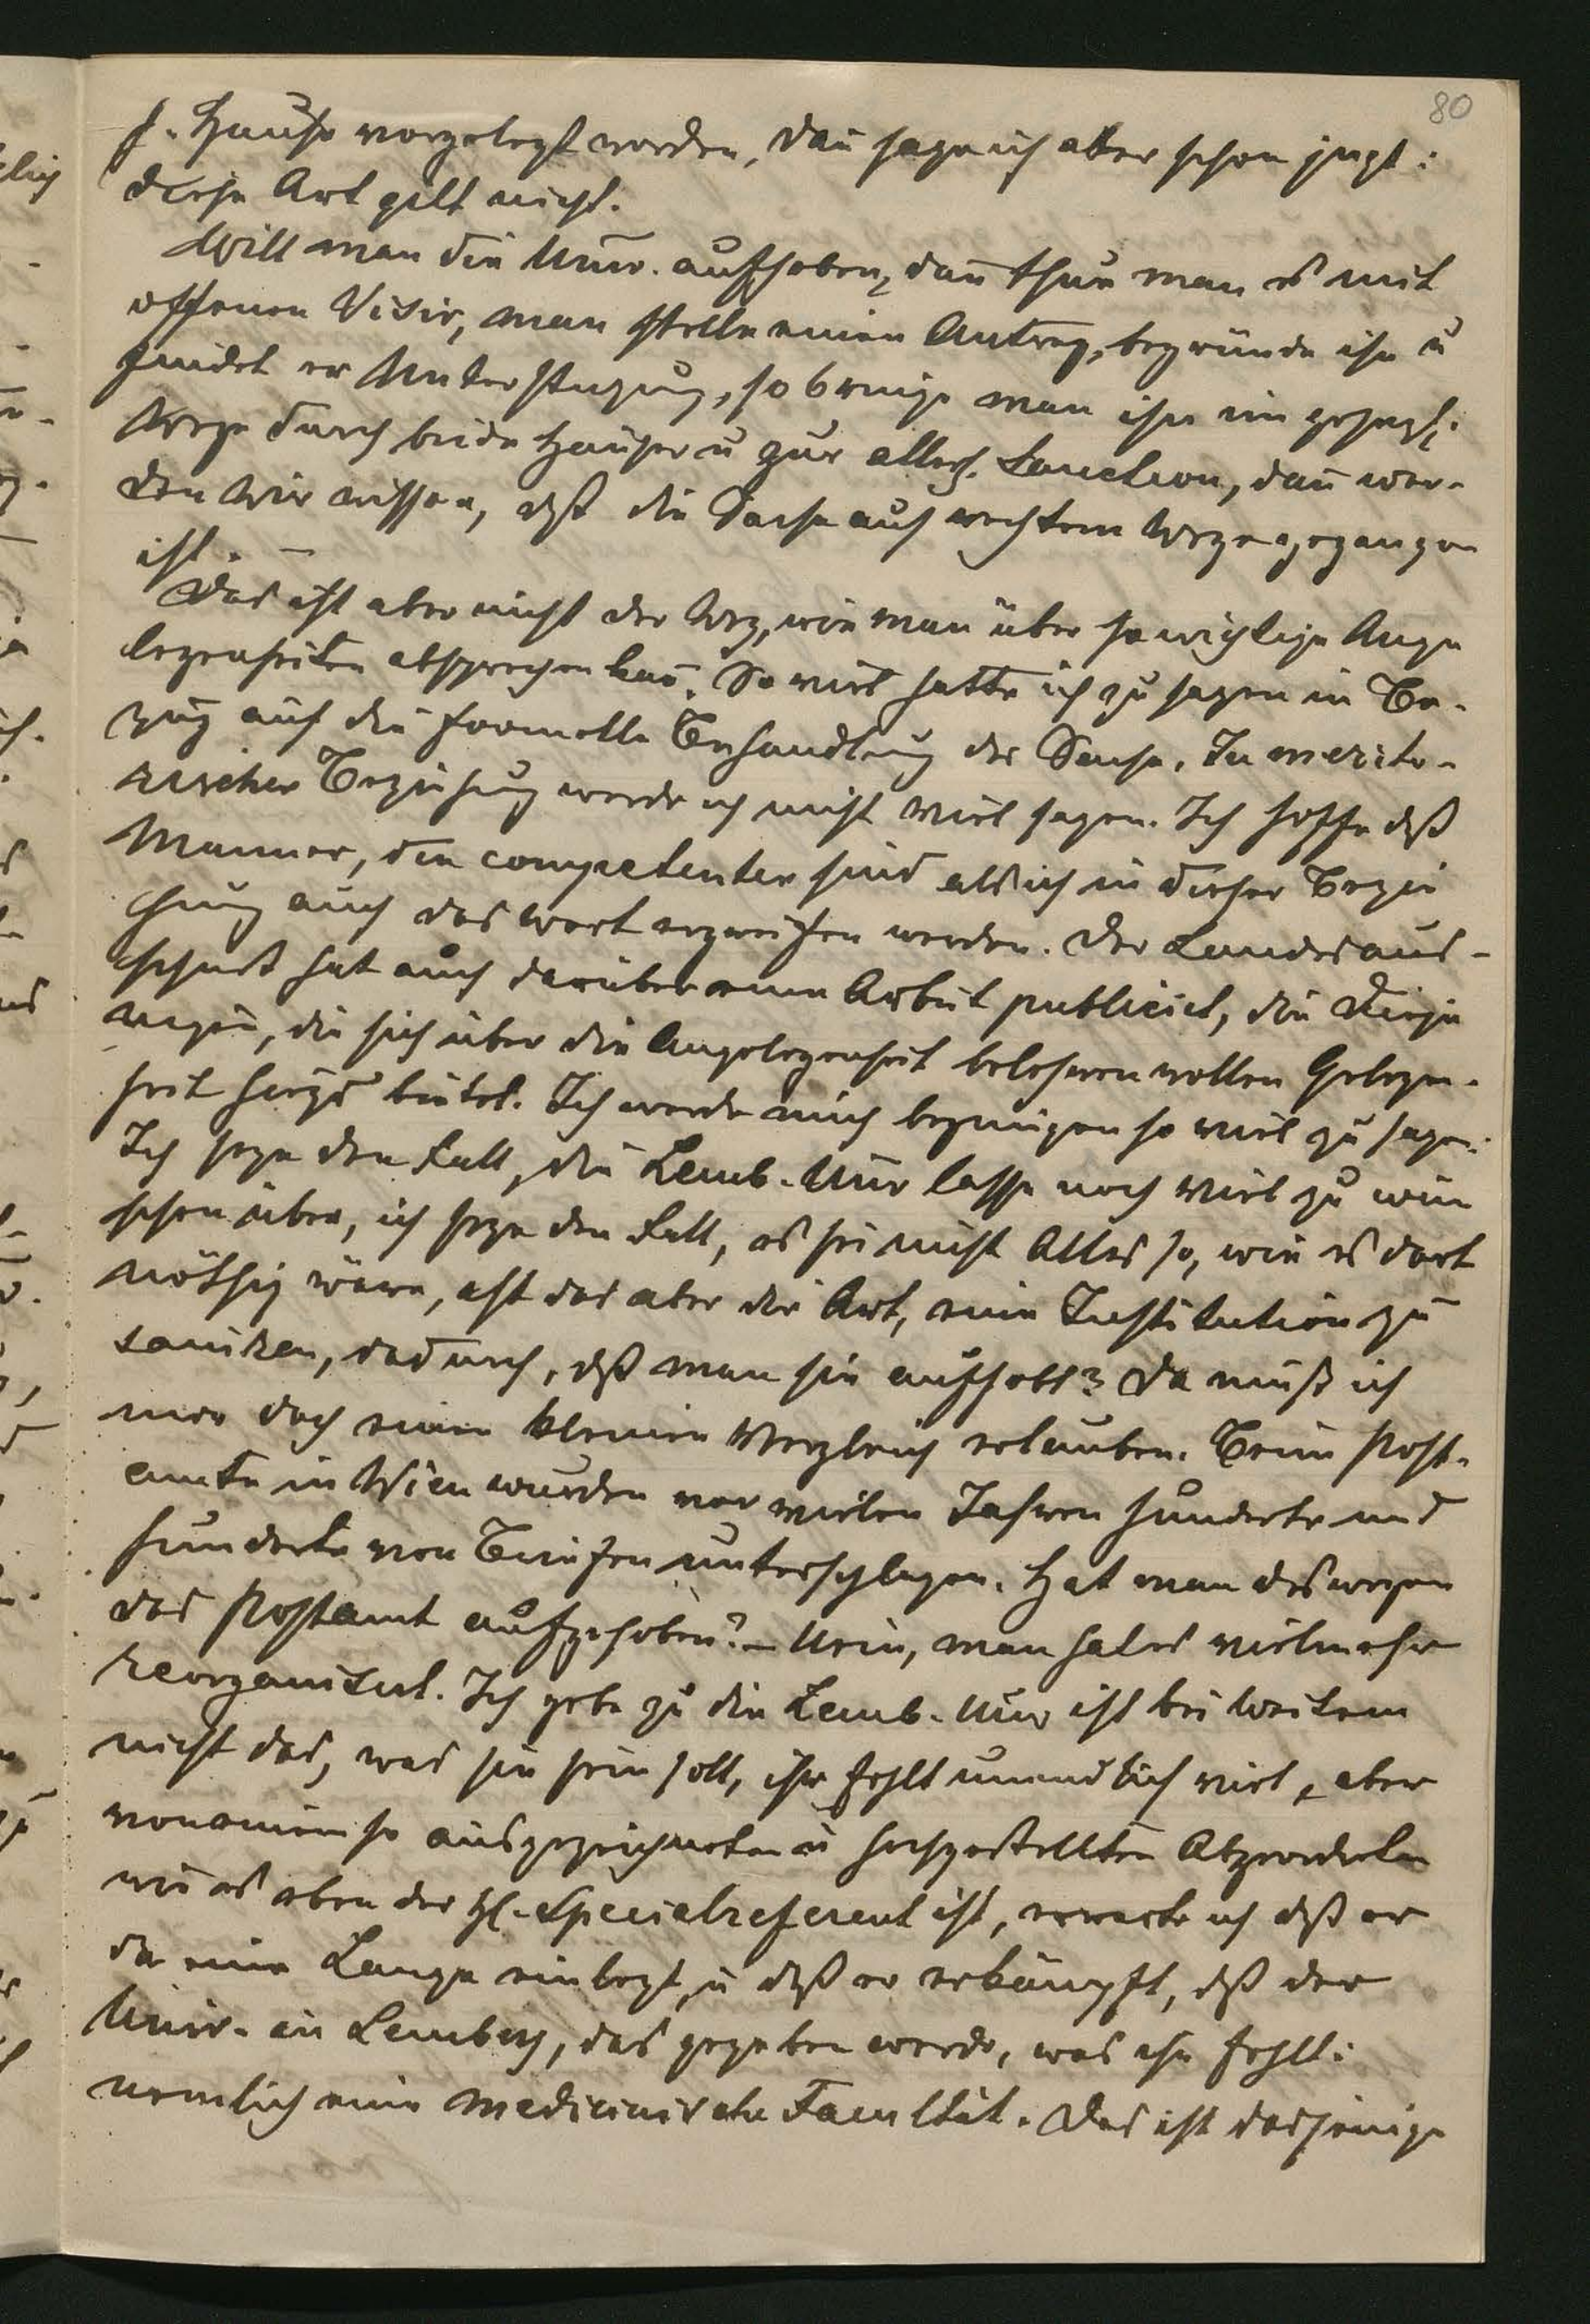 80
h. Hause vorgelegt worden, dañ sage ich aber schon jezt:
diese Art gilt nicht.
Will man die Univ. aufheben, dañ thue man es mit
offenen Visir, man stelle einen Antrag, begründe ihn u
findet er Unterstüzung, so bringe man ihn im gesezl:
Wege durch beide Häuser u zur allerh. Sanction, dañ wer-
den wir wissen, daß die Sache auf rechtem Wege gegangen
ist. –
Das ist aber nicht der Weg, wie man über so wichtige Ange
legenheiten absprechen kañ. So viel hatte ich zu sagen in Be-
zug auf die formelle Behandlung der Sache. In merito-
rischer Beziehung werde ich nicht viel sagen. Ich hoffe daß
Männer, die competenter sind als ich in dieser Bezie
hung auch das Wort ergreifen werden. Der Landesaus-
schuß hat auch darüber eine Arbeit publicirt, die Diejе
nigen, die sich über die Angelegenheit belehren wollen Gelegen-
heit hiezu bietet. Ich werde mich begnügen so viel zu sagen:
Ich seze den Fall, die Lemb. Univ lasse noch viel zu wün
schen über, ich seze den Fall, es sei nicht Alles so, wie es dort
nöthig wäre, ist das aber die Art, eine Institution zu
saniren, dadurch, daß man sie aufhebt? Da muß ich
mir doch einen kleinen Vergleich erlauben. Beim Post-
amte in Wien wurden vor vielen Jahren hunderte und
hunderte von Briefen unterschlagen. Hat man deswegen
das Postamt aufgehoben? – Nein, man hat es vielmehr
reorganisirt. Ich gebe zu die Lemb. Univ ist bei Weitem
nicht das, was sie sein soll, ihr fehlt unendlich viel, aber
von einem so ausgezeichneten u hochgestellten Abgeordneten
wie es eben der H. Specialreferent ist, erwarte ich daß er
da eine Lanze einlegt, u daß er erkämpft, daß der
Univ. in Lemberg, das gegeben werde, was ihr fehlt:
nemlich eine medicinische Facultät. Das ist dasjenige